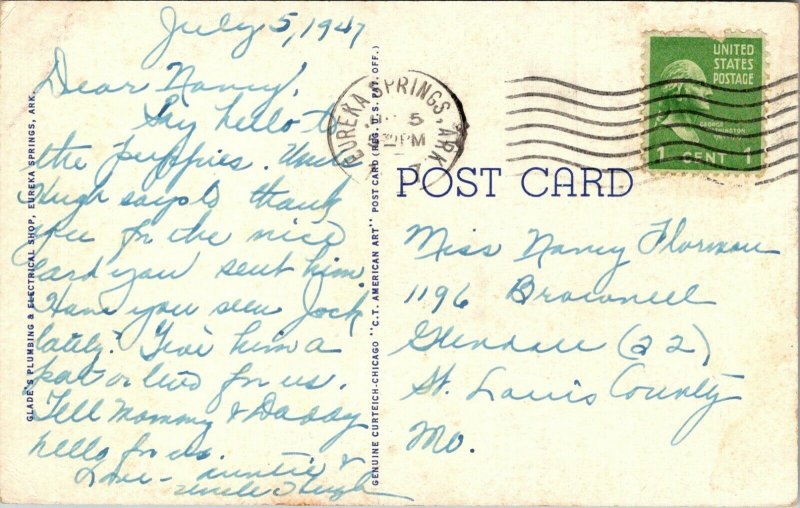 July 5, 1947
Dear Nancy,
Say hello to
the puppies. Uncle
Hugh says to thank
you for the nice
card you sent him.
Have you seen Jock
lately? Give him a
pat or two for us.
Tell Mommy & Daddy
hello for us.
Love - auntie &
uncle Hugh
GLADE'S PLUMBING & ELECTRICAL SHOP, EUREKA SPRINGS, ARK.
GENUINE CURTEICH-CHICAGO "C.T. AMERICAN ART" POST CARD (REG. U.S. PAT. OFF.)
EUREKA SPRINGS, ARK.
5
PM
UNITED
STATES
POSTAGE
GEORGE
WASHINGTON
1 CENT 1
POST CARD
Miss Nancy Florman
1196 Brownell
Glendale (22)
St. Louis County
Mo.